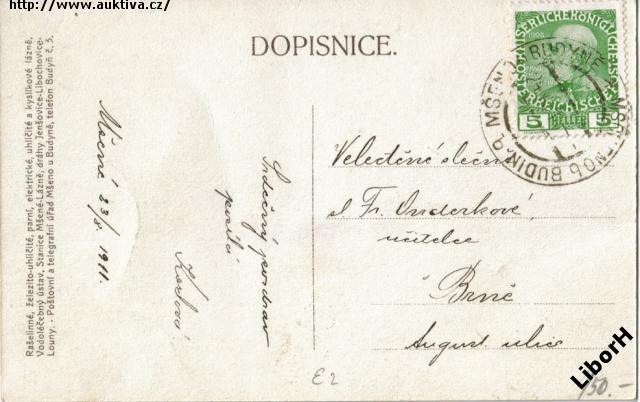 http://www.auktiva.cz/
DOPISNICE.
Rašelinné, železito-uhličité, parní, elektrické, uhličité a kyslíkové lázně,
Vodoléčebný ústav. Stanice Mšené-Lázně, dráhy Jenšovice-Libochovice-
Louny. - Poštovní a telegrafní úřad Mšeno u Budyně, telefon Budyň č. 5.
Mšené 23/8 1911.
Srdečný pozdrav
posílá
5 HELLER 5
MŠENO BUDYNĚ
BUDIN
Velectěné slečně
sl. Fr. Onderkové,
učitelce
Brně
August ulice
E2
150.-
LiborH